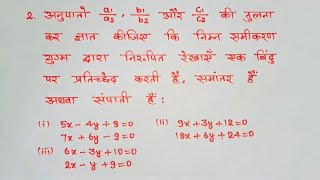 2. अनुपातों a₁/a₂ , b₁/b₂ और c₁/c₂ की तुलना
कर ज्ञात कीजिए कि निम्न समीकरण
युग्म द्वारा निरूपित रेखाएँ एक बिंदु
पर प्रतिच्छेद करती हैं, समांतर हैं
अथवा संपाती हैं :
(i) 5x - 4y + 8 = 0 (ii) 9x + 3y + 12 = 0
7x + 6y - 9 = 0 18x + 6y + 24 = 0
(iii) 6x - 3y + 10 = 0
2x - y + 9 = 0